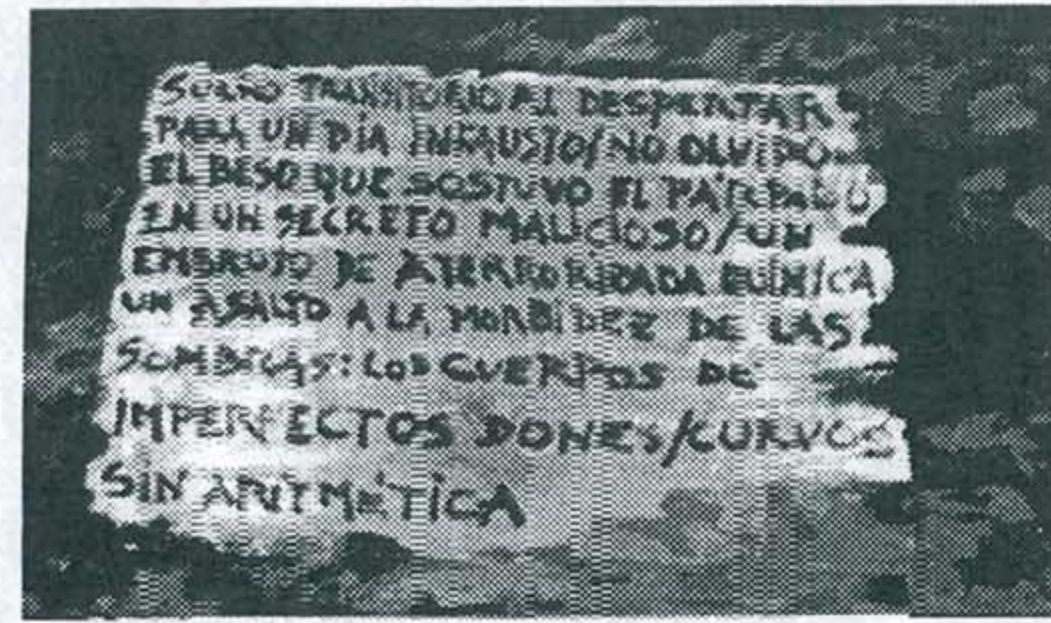 SUEÑO TRANSITORIO AL DESPERTAR
PARA UN DÍA INFAUSTO/NO OLVIDO
EL BESO QUE SOSTUVO EL PÁRPADO
EN UN SECRETO MALICIOSO/UN
EMBRUJO DE ATEMORIZADA QUÍMICA
UN ASALTO A LA MORBIDEZ DE LAS
SOMBRAS: LOS CUERPOS DE
IMPERFECTOS DONES/CURVOS
SIN ARITMÉTICA